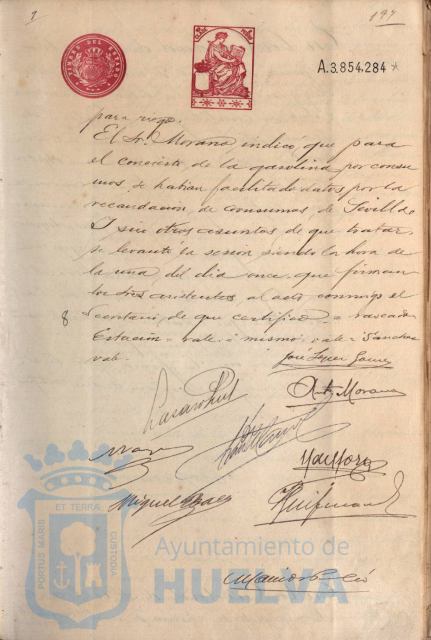 197
A.3.854.284
para riego.
El Sr. Morana indicó, que para
el concierto de la gasolina por consu
mos, se habían facilitado datos por la
recaudación de consumos de Sevilla.
Y sin otros asuntos de que tratar,
se levantó la sesión siendo la hora de
la una del día once, que firman
los Sres asistentes al acto conmigo el
8 Secretario, de que certifico = rascado
Estación = vale = mismo = vale = Sanchez
vale.
José
Antº Morana
Miguel
PORTUS MARIS ET TERRÆ CUSTODIA
Ayuntamiento de
HUELVA